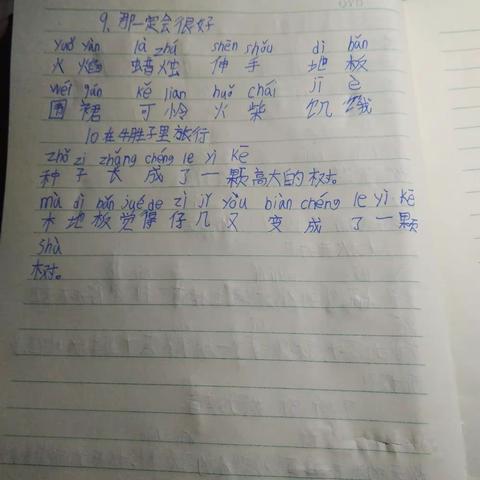 9、那一定会很好
yuǒ yàn là zhú shēn shǒu dì bǎn
火焰 蜡烛 伸手 地板
wéi qún kě lián huǒ chái jī è
围裙 可怜 火柴 饥饿
10 在牛肚子里旅行
zhǒ zi zhǎng chéng le yì kē
种子长成了一颗高大的树。
mù dì bǎn jué de zì jǐ yòu biàn chéng le yì kē
木地板觉得仔几又变成了一颗
shù
树。